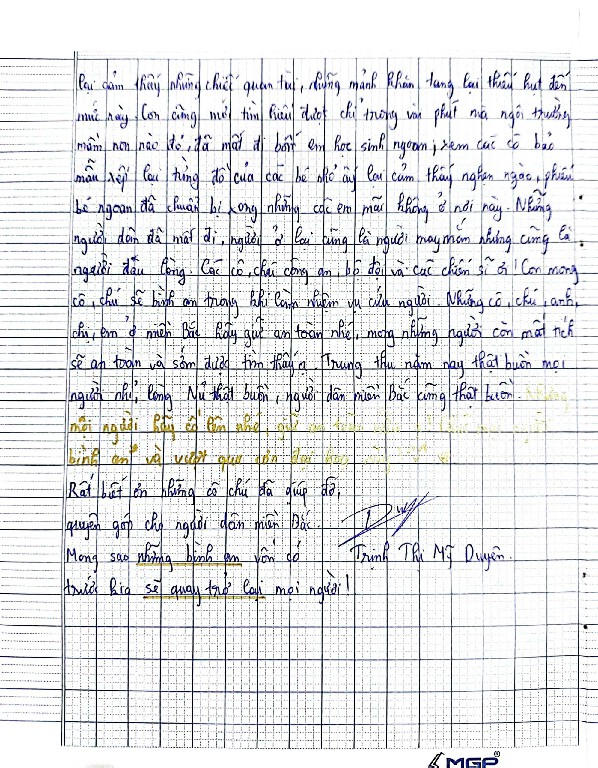 lại cảm thấy những chiếc quan tài, những mảnh khăn tang lại thiếu hụt đến
mức này. Con cũng mới tìm hiểu được chỉ trong vài phút mà ngôi trường
mầm non nào đó, đã mất đi bốn em học sinh ngoan, xem các cô bảo
mẫu xếp lại từng đồ của các bé nhỏ ấy lại cảm thấy nghẹn ngào, phiếu
bé ngoan đã chuẩn bị xong nhưng các em mãi không ở nơi này. Những
người dân đã mất đi, người ở lại cũng là người may mắn nhưng cũng là
người đau lòng. Các cô, chú công an, bộ đội và các chiến sĩ ơi! Con mong
cô, chú sẽ bình an trong khi làm nhiệm vụ cứu người. Những cô, chú, anh,
chị, em ở miền Bắc hãy giữ an toàn nhé, mong những người còn mất tích
sẽ an toàn và sớm được tìm thấy ạ. Trung thu năm nay thật buồn mọi
người nhỉ, làng Nủ thật buồn, người dân miền Bắc cũng thật buồn. Nhưng
mọi người hãy cố lên nhé, giữ an toàn
bình an" và vượt qua cơn
Rất biết ơn những cô chú đã giúp đỡ,
quyên góp cho người dân miền Bắc.
Mong sao những bình an vốn có
Trịnh Thị Mỹ Duyên.
trước kia sẽ quay trở lại mọi người!
MGP